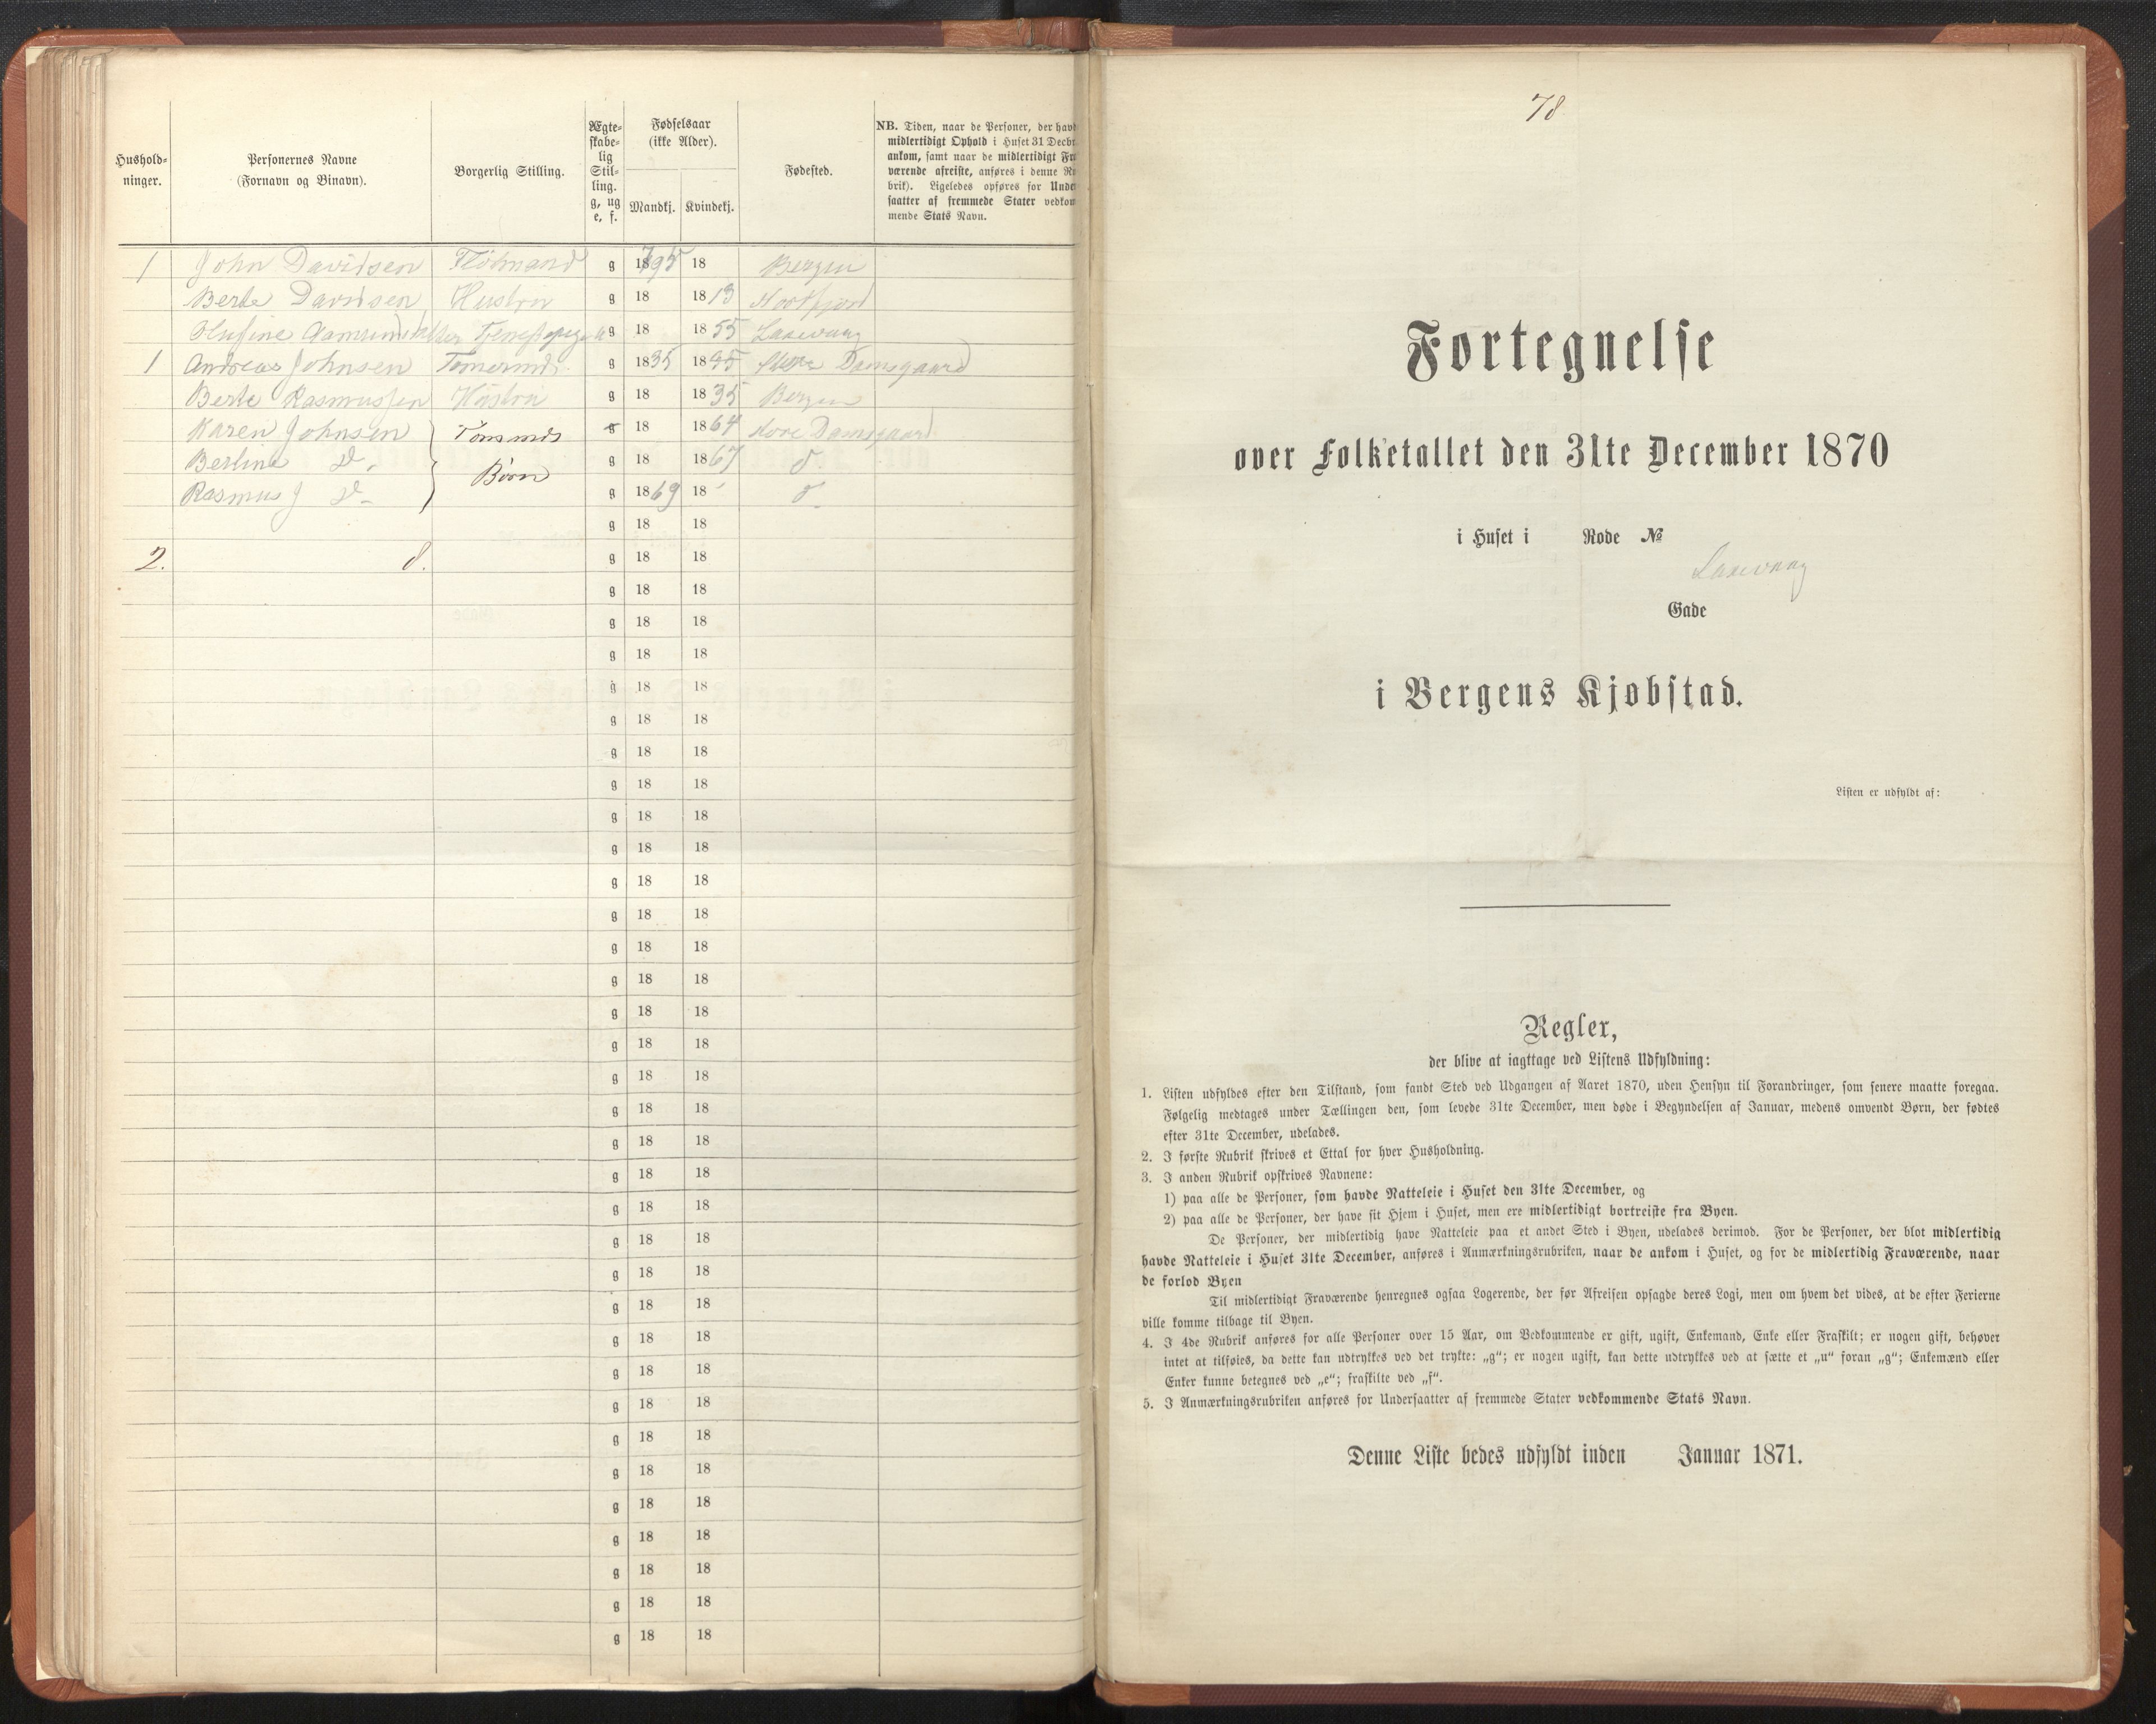 Hushold-
ninger.
Personernes Navne
(Fornavn og Binavn).
Borgerlig Stilling.
Ægte-
skabe-
lig
Stil-
ling.
g, ug
e, f.
Fødselsaar
(ikke Alder).
Mandkj. Kvindekj.
Fødested.
NB. Tiden, naar de Personer, der havd
midlertidigt Ophold i Huset 31 Decbr.
ankom, samt naar de midlertidigt Fra
værende afreiste, anføres i denne Ru
brik). Ligeledes opføres for Under
saatter af fremmede Stater vedkom
mende Stats Navn.
1 John Davidsen Flödmand g 1795 18 Bergen
Berte Davidsen Hustru g 18 1813 Nordfjord
Olufine ug 18 1855 Laxevaag
1 Andreas Johnsen Tømermd. g 1835 18 Damsgaard
Berte Rasmussen Hustru g 18 1835 Bergen
Karen Johnsen Tømmermds g 18 1864 Store Damsgaard
Bertine D. Børn g 18 1867 d
Rasmus J D. g 1869 18 d
g 18 18
2. 8. g 18 18
g 18 18
g 18 18
g 18 18
g 18 18
g 18 18
g 18 18
g 18 18
g 18 18
g 18 18
g 18 18
g 18 18
g 18 18
g 18 18
g 18 18
g 18 18
g 18 18
g 18 18
g 18 18
g 18 18
g 18 18
g 18 18
g 18 18
g 18 18
g 18 18
g 18 18
g 18 18
g 18 18
g 18 18
g 18 18
g 18 18
g 18 18
g 18 18
g 18 18
78
Fortegnelse
over Folketallet den 31te December 1870
i Huset i Rode №
Laxevaag
Gade
i Bergens Kjøbstad.
Listen er udfyldt af:
Regler,
der blive at iagttage ved Listens Udfyldning:
1. Listen udfyldes efter den Tilstand, som fandt Sted ved Udgangen af Aaret 1870, uden Hensyn til Forandringer, som senere maatte foregaa.
Følgelig medtages under Tællingen den, som levede 31te December, men døde i Begyndelsen af Januar, medens omvendt Børn, der fødtes
efter 31te December, udelades.
2. I første Rubrik skrives et Ettal for hver Husholdning.
3. I anden Rubrik opskrives Navnene:
1) paa alle de Personer, som havde Natteleie i Huset den 31te December, og
2) paa alle de Personer, der have sit Hjem i Huset, men ere midlertidigt bortreiste fra Byen.
De Personer, der midlertidig have Natteleie paa et andet Sted i Byen, udelades derimod. For de Personer, der blot midlertidig
havde Natteleie i Huset 31te December, anføres i Anmærkningsrubriken, naar de ankom i Huset, og for de midlertidig Fraværende, naar
de forlod Byen
Til midlertidigt Fraværende henregnes ogsaa Logerende, der før Afreisen opsagde deres Logi, men om hvem det vides, at de efter Ferierne
ville komme tilbage til Byen.
4. I 4de Rubrik anføres for alle Personer over 15 Aar, om Vedkommende er gift, ugift, Enkemand, Enke eller Fraskilt; er nogen gift, behøver
intet at tilføies, da dette kan udtrykkes ved det trykte: „g“; er nogen ugift, kan dette udtrykkes ved at sætte et „u“ foran „g“; Enkemænd eller
Enker kunne betegnes ved „e“; fraskilte ved „f“.
5. I Anmærkningsrubriken anføres for Undersaatter af fremmede Stater vedkommende Stats Navn.
Denne Liste bedes udfyldt inden Januar 1871.